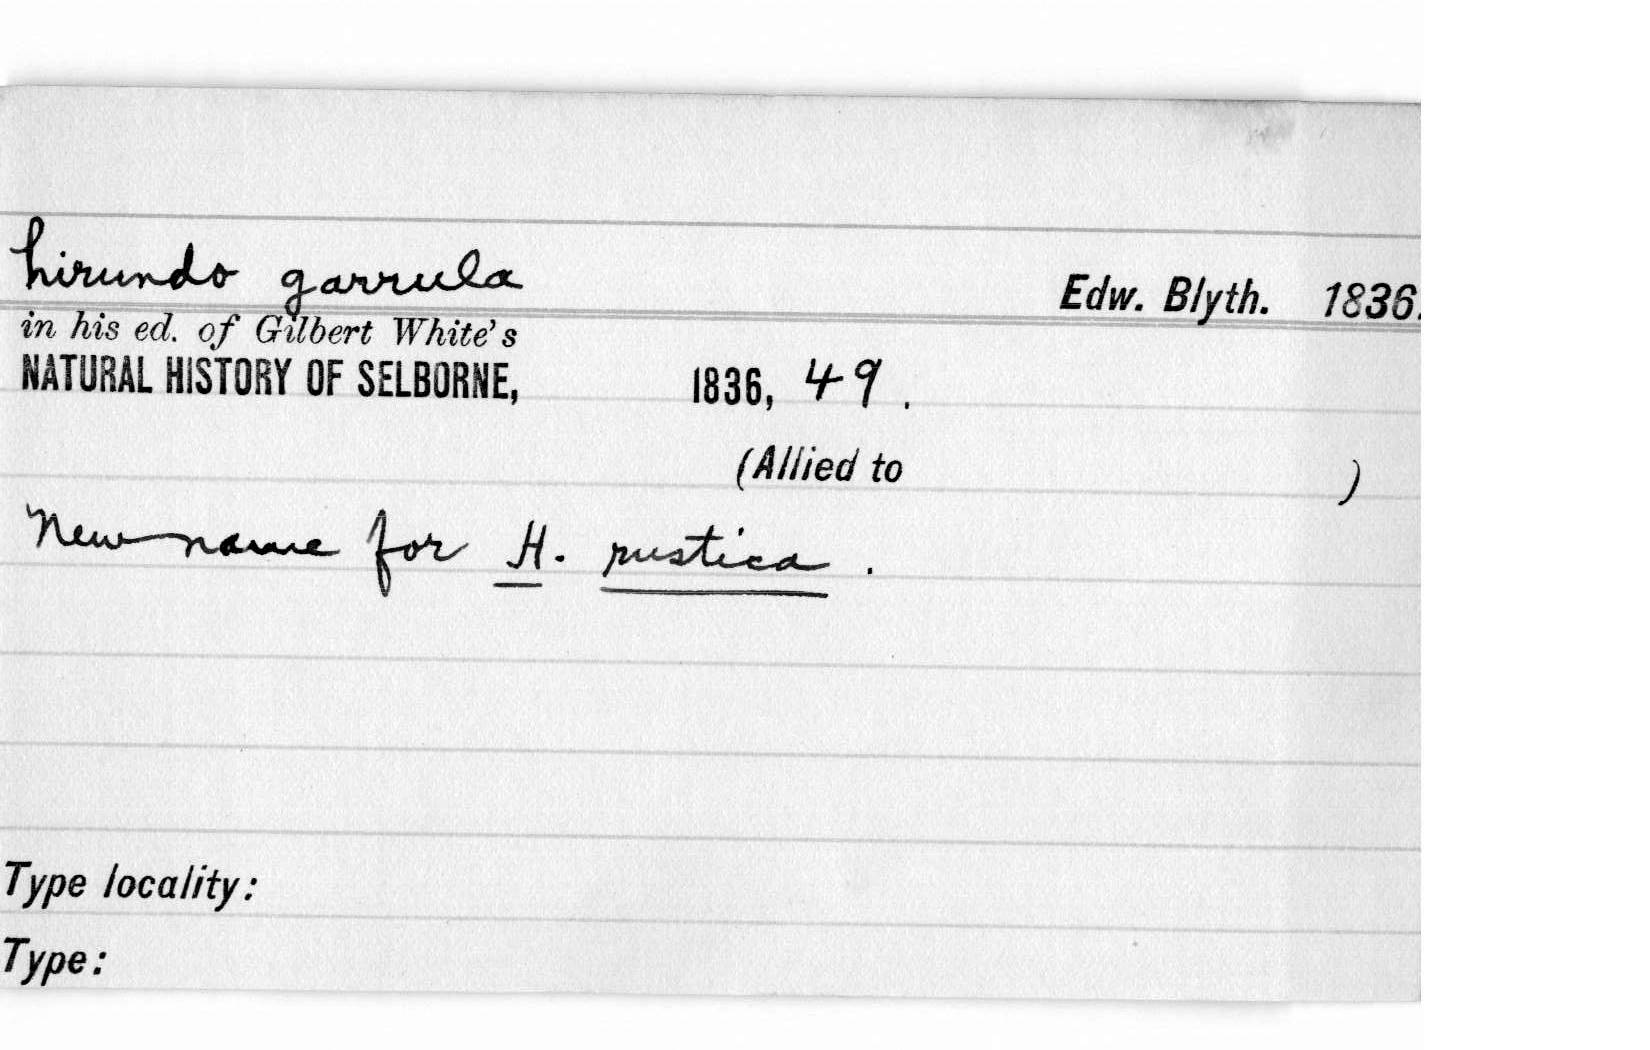 hirundo garrula Edw. Blyth. 1836.
in his ed. of Gilbert White's
NATURAL HISTORY OF SELBORNE, 1836, 49.
(Allied to )
New name for H. rustica.
Type locality:
Type: